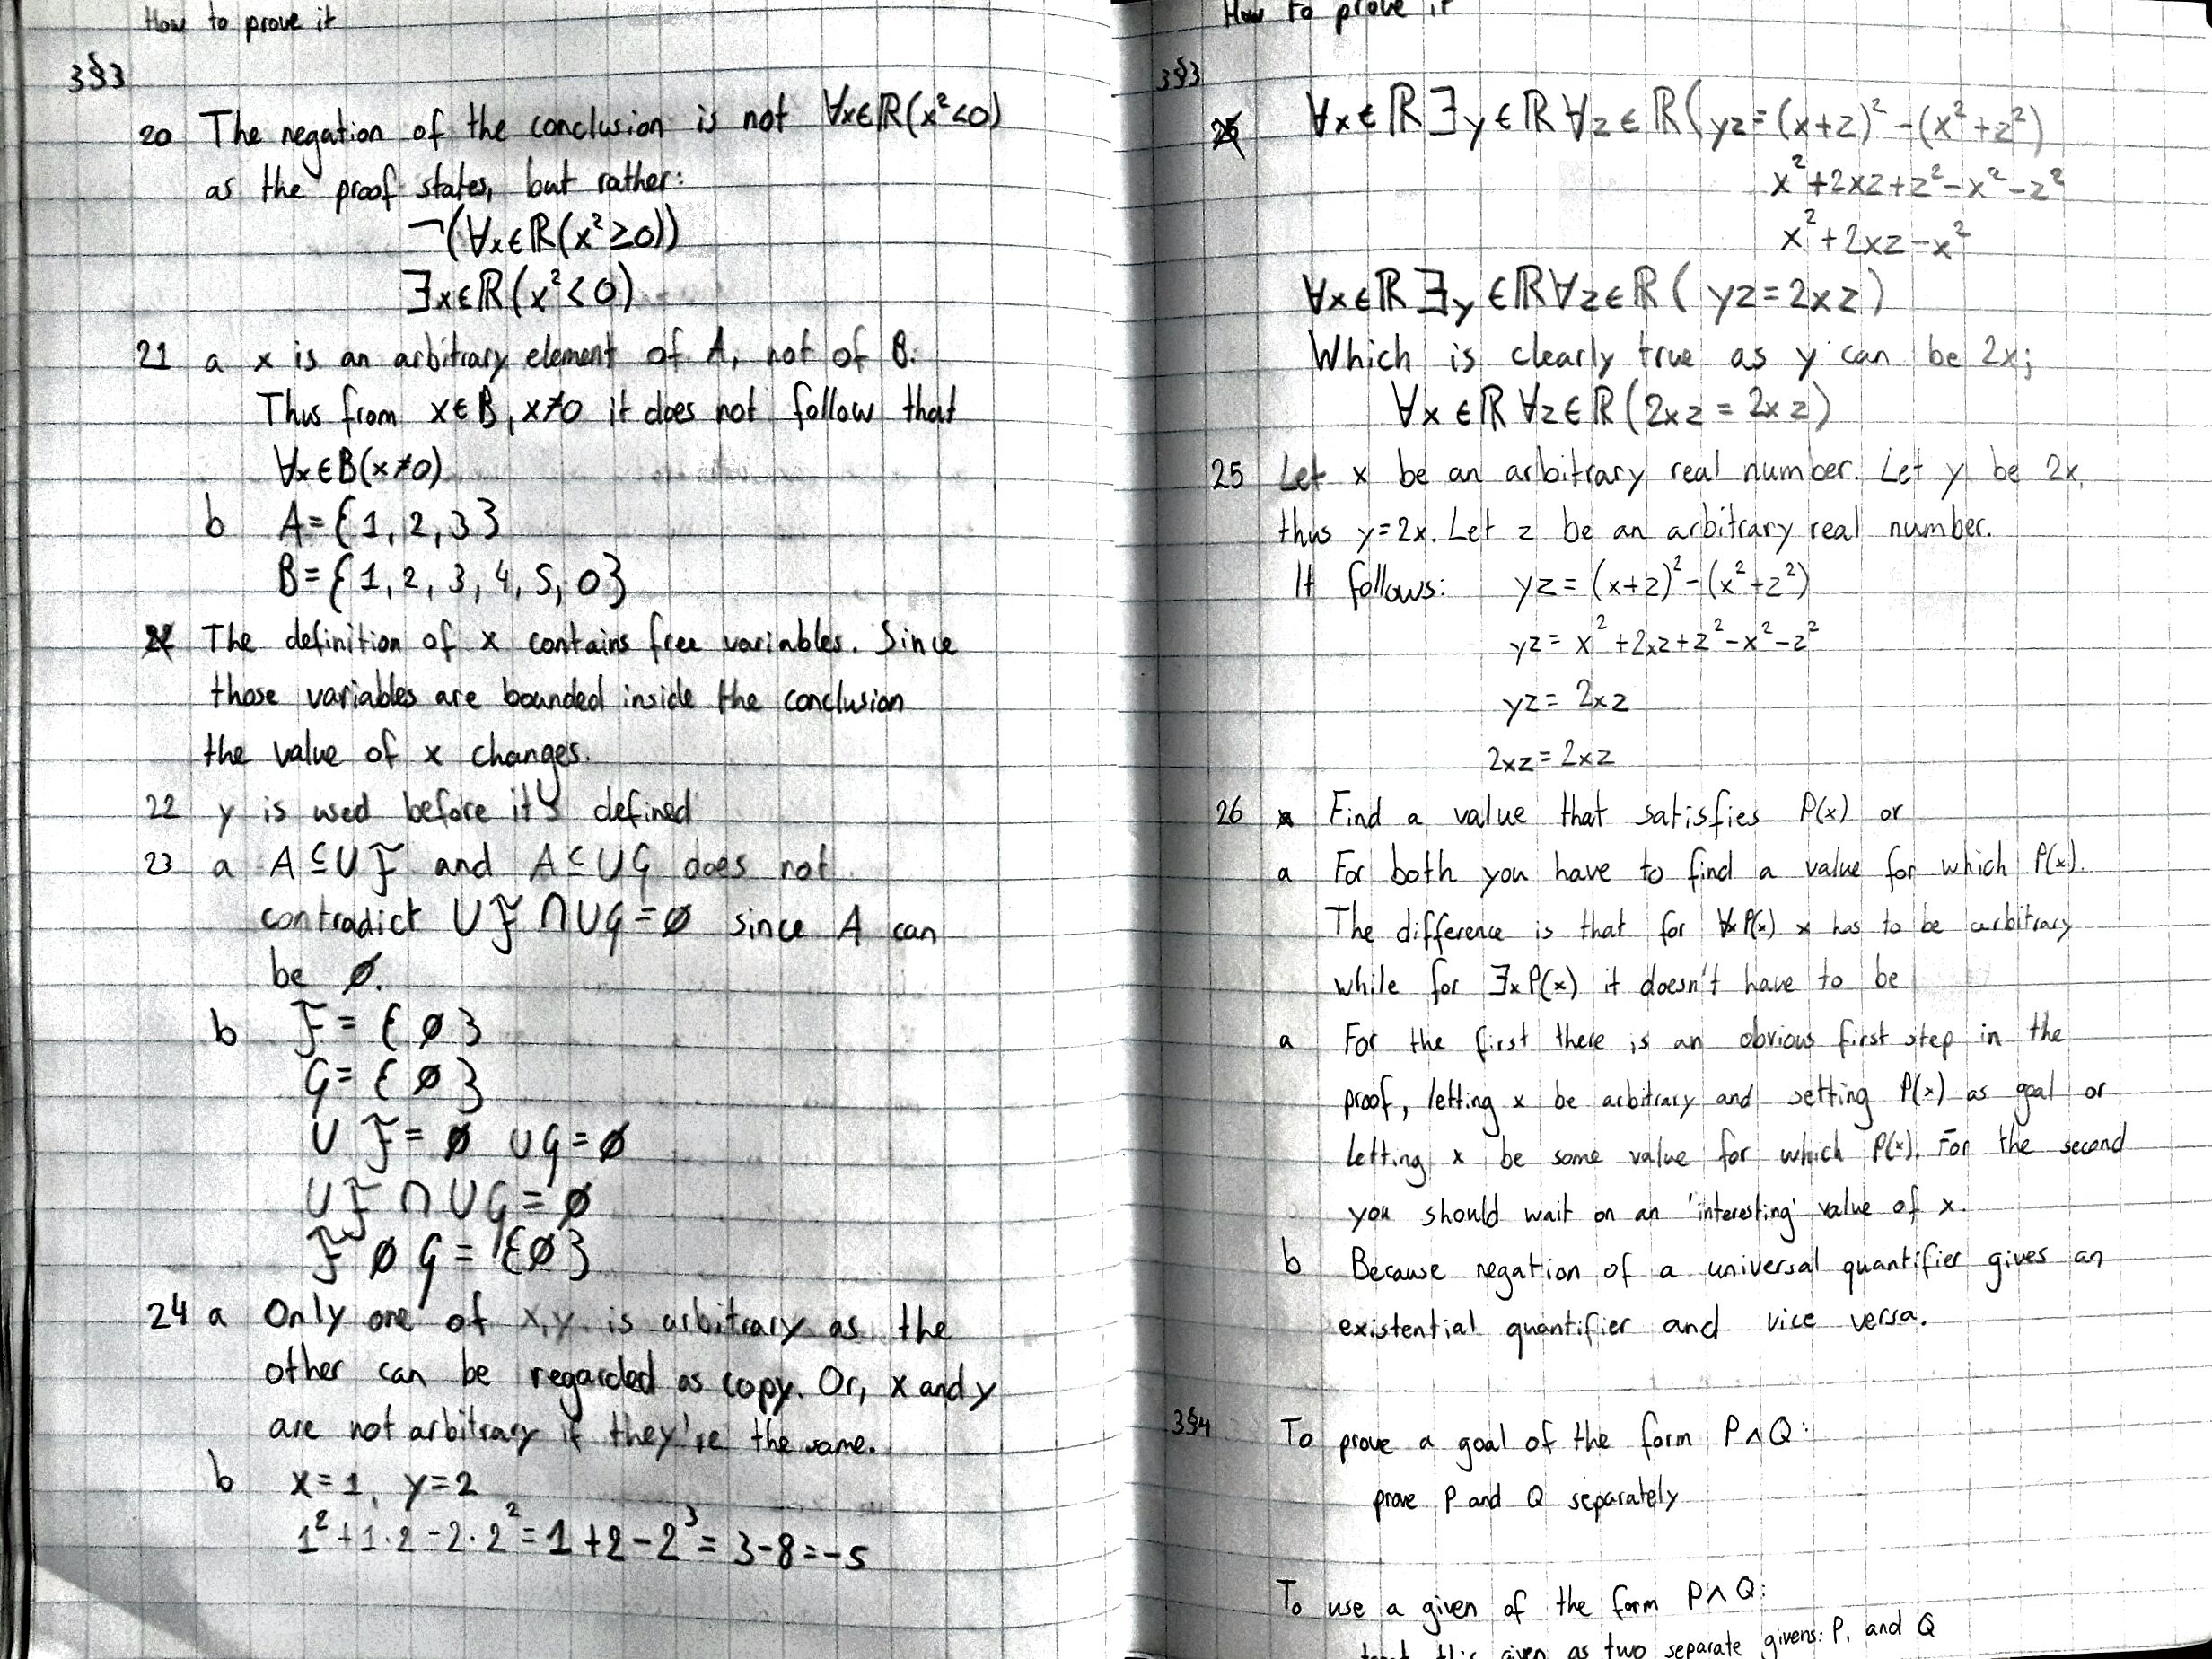 How to prove it
3§3
20 The negation of the conclusion is not ∀x∈ℝ(x²<0)
as the proof states, but rather:
¬(∀x∈ℝ(x²≥0))
∃x∈ℝ(x²<0)
21 a x is an arbitrary element of A, not of B.
Thus from x∈B, x≠0 it does not follow that
∀x∈B(x≠0)
b A={1,2,3}
B={1,2,3,4,5,0}
The definition of x contains free variables. Since
those variables are bounded inside the conclusion
the value of x changes.
22 y is used before it's defined
23 a A⊆∪F and A⊆∪G does not
contradict ∪F∩∪G=∅ since A can
be ∅.
b F={∅}
G={∅}
∪F=∅ ∪G=∅
∪F∩∪G=∅
F∅G={∅}
24 a Only one of x,y is arbitrary as the
other can be regarded as copy. Or, x and y
are not arbitrary if they're the same.
b x=1, y=2
1²+1·2-2·2²=1+2-2³=3-8=-5
How to prove it
3§3
25 ∀x∈ℝ∃y∈ℝ∀z∈ℝ(yz=(x+z)²-(x²+z²)
x²+2xz+z²-x²-z²
x²+2xz-x²
∀x∈ℝ∃y∈ℝ∀z∈ℝ(yz=2xz)
Which is clearly true as y can be 2x;
∀x∈ℝ∀z∈ℝ(2xz=2xz)
25 Let x be an arbitrary real number. Let y be 2x,
thus y=2x. Let z be an arbitrary real number.
It follows: yz=(x+z)²-(x²+z²)
yz=x²+2xz+z²-x²-z²
yz=2xz
2xz=2xz
26 a Find a value that satisfies P(x) or
a For both you have to find a value for which P(x).
The difference is that for ∀xP(x) x has to be arbitrary
while for ∃xP(x) it doesn't have to be
a For the first there is an obvious first step in the
proof, letting x be arbitrary and setting P(x) as goal or
letting x be some value for which P(x). For the second
you should wait on an 'interesting' value of x.
b Because negation of a universal quantifier gives an
existential quantifier and vice versa.
3§4 To prove a goal of the form P∧Q:
prove P and Q separately
To use a given of the form P∧Q:
treat this given as two separate givens: P, and Q